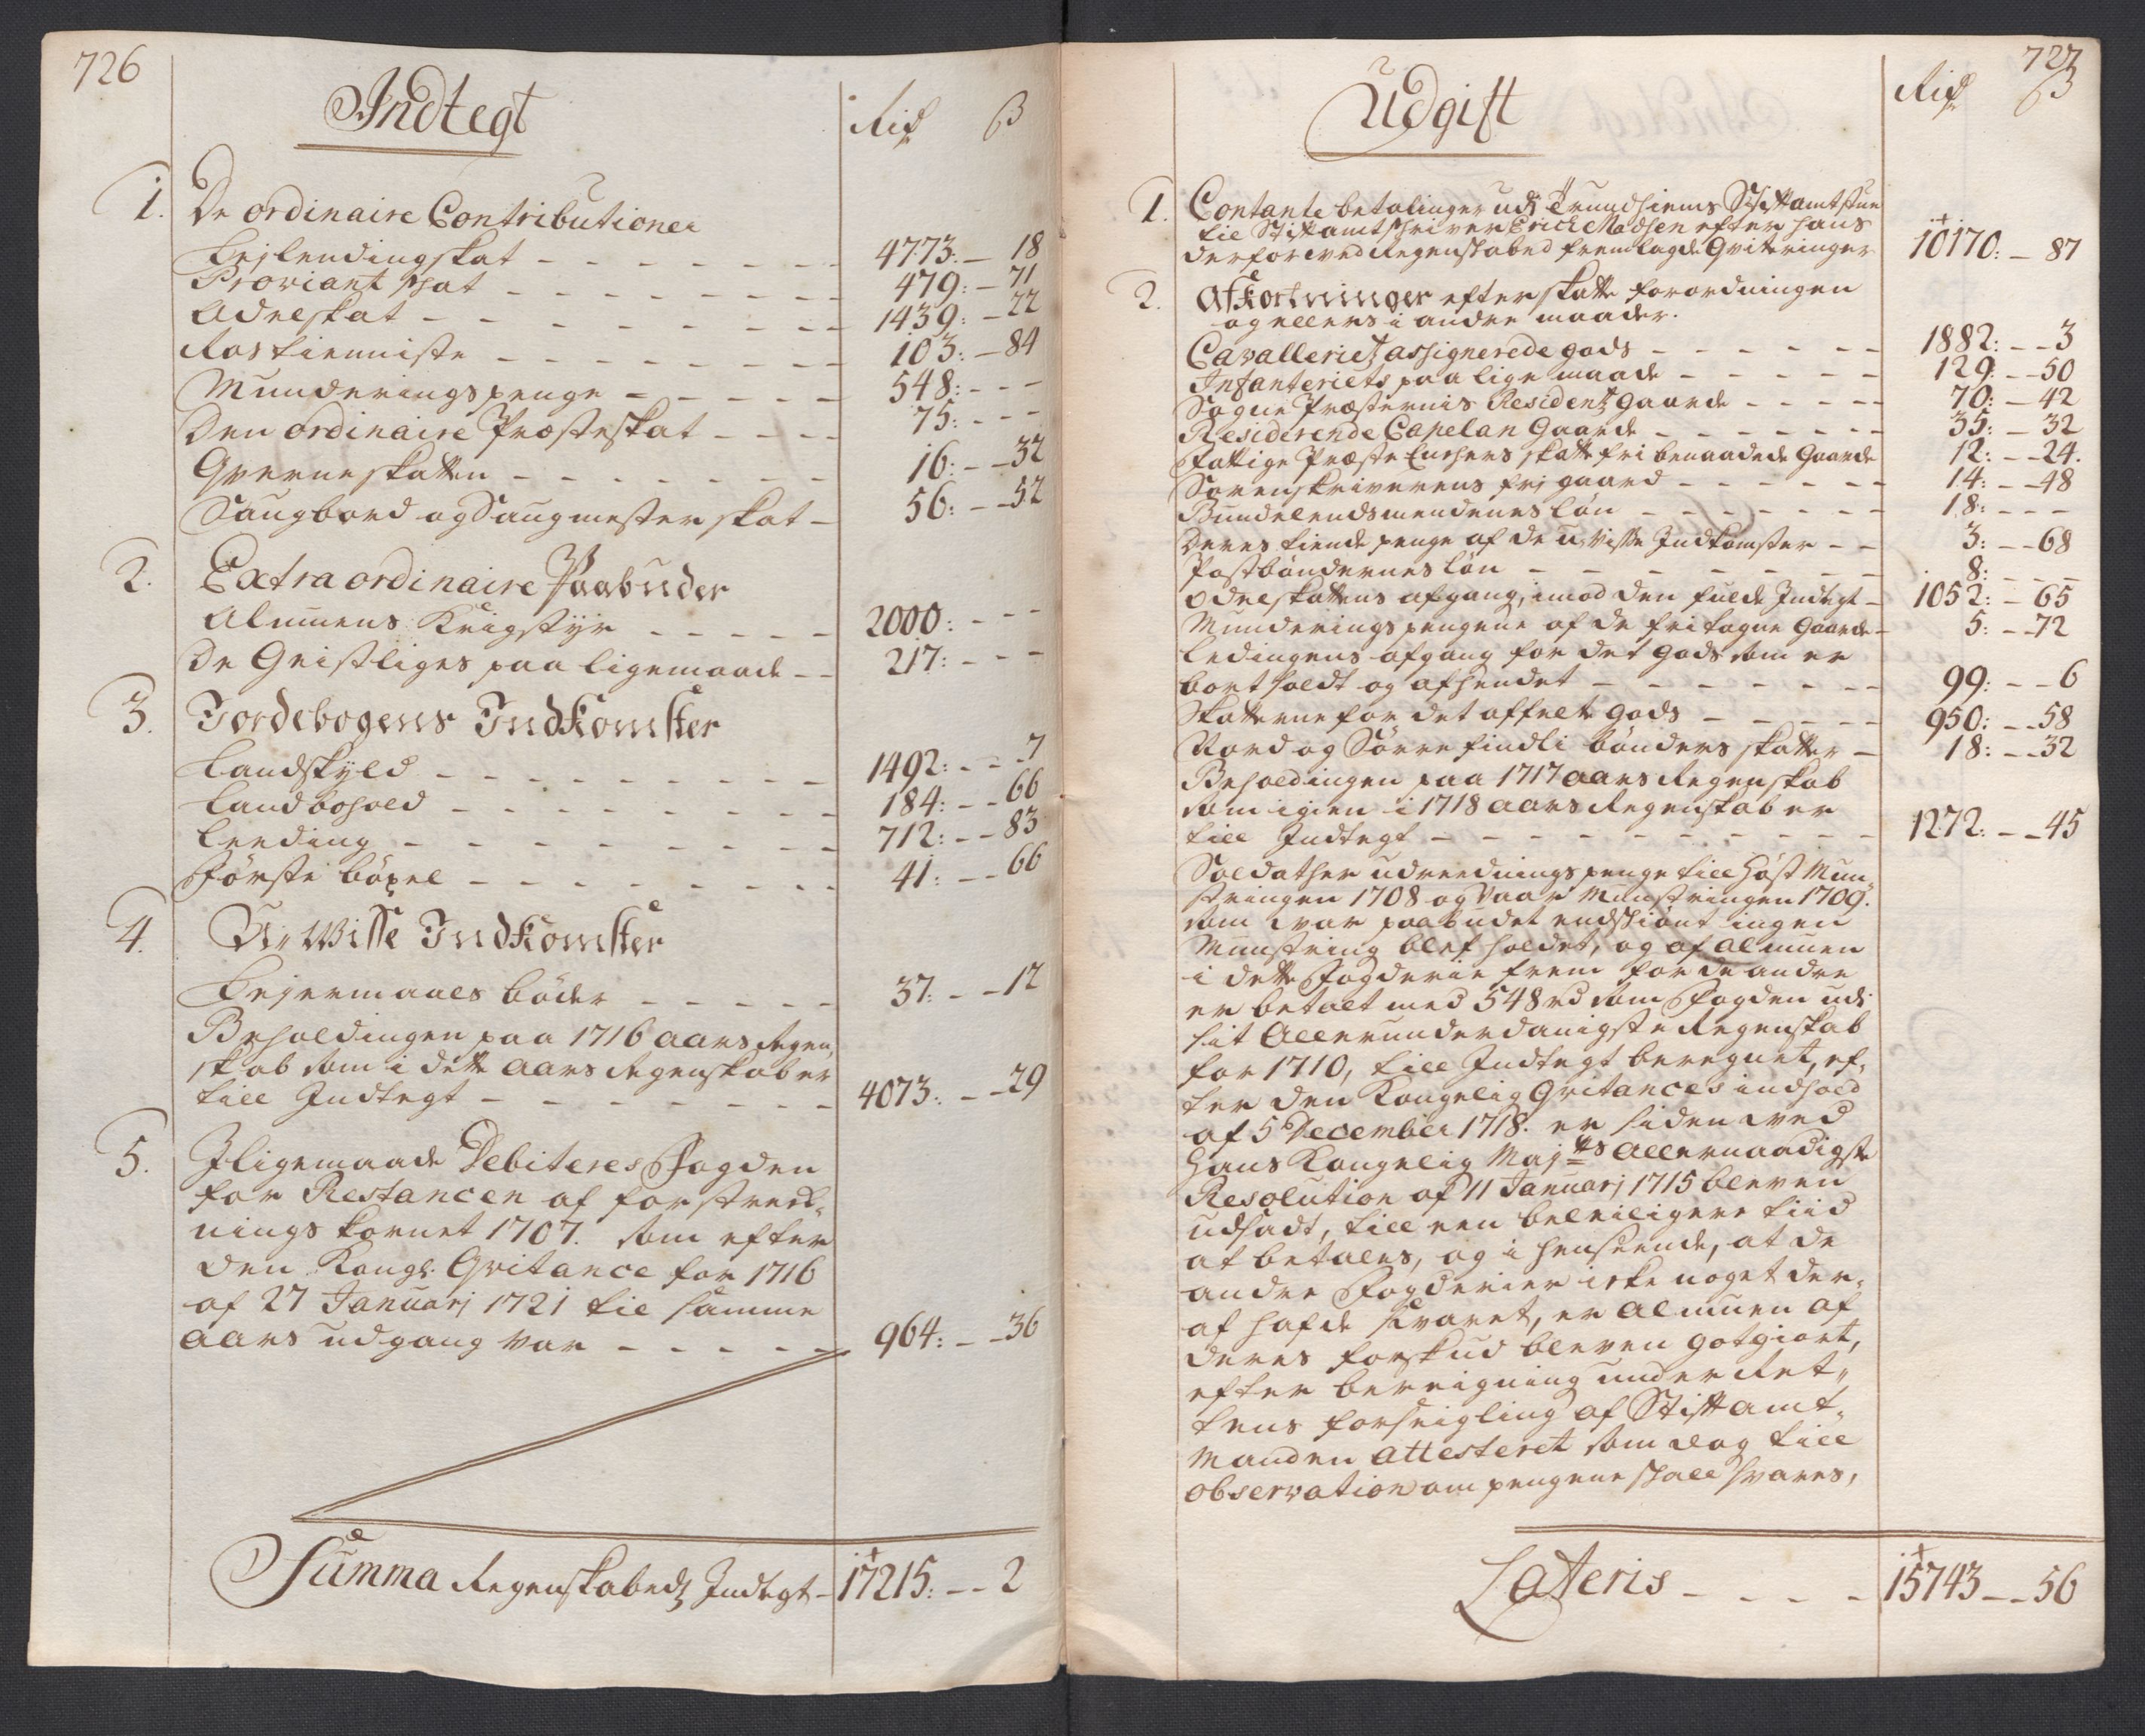 726
Indtegt
Rixd ß
1. De ordinaire Contributioner
Leylendingskat - - - - - - - 4773: - 18
Proviant skat - - - - - - - - 479: - 71
Odelskat - - - - - - - - 1439: - 22
Rostienniste - - - - - - - 103: - 84
Munderings penge - - - - - 548: - - -
Den ordinaire Præsteskat - - - - 75: - - -
Qværneskatten - - - - - - - 16: - - 32
Saugbord og Saugmester skat - 56: - - 52
2. Extra ordinaire Paabuder
Almuens Krigstyr - - - - - 2000: - - -
De Geistliges paa ligemaade - - 217: - - -
3. Jordebogens Indkomster
Landskyld - - - - - - - - - 1492: - - 7
Landbohold - - - - - - - - 184: - - 66
Leeding - - - - - - - - - 712: - - 83
Første bøxel - - - - - - - - - 41: - - 66
4. U,,Wisse Indkomster
Leyermaals bøder - - - - - 37: - - 12
Beholdingen paa 1716 aars Regen,,
skab som i dette aars Regenskab er
till Indtegt - - - - - - - 4073: - - 29
5. Iligemaade Debiteres Fogden
for Restancen af forstræk,,
nings kornet 1707. som efter
den Kongl: Qvitance for 1716
af 27 Januarj 1721 til samme
aars udgang var - - - - - 964: - - 36
Summa Regenskabedz Indtegt - 17215: - - 2
727
Udgift
Rixd ß
1. Contante betalinger udj Trundhiems Stiftamtstue
til Stiftamtschriver Erich Madsen efter hans
derfor ved Regenskabed fremlagde Qvitteringer 10170: - 87
2. Afkortninger efter skatte forordningen
og ellers i andre maader.
Cavalleriedz assignerede gods - - - - - - 1882: - - 3
Infanteriets paa lige maade - - - - - 129: - - 50
Sogne Præsternis Residentz gaarde - - - - - 70: - 42
Residerende Capelan Gaarde - - - - - - - 35: - 32
Fattige Præste Enchers skatte fri benaadede Gaarde 12: - - 24.
Sorenskriverens frj gaard - - - - - - 14: - - 48
Bundelendsmendenes løn - - - - - - - 18: - - -
Deres tiende penge af de u,,visse Indkomster - - 3: - - 68
Postbøndernes løn - - - - - - - - 8: - - -
Odelskattens afgang, imod den fulde Indtegt - 1052: - 65
Munderings pengene af de fritagne Gaarde - 5: - - 72
Ledingens afgang for det gods som er
bort soldt og afhendet - - - - - - - - 99: - - 6
Skatterne for det affelte gods - - - - - 950: - - 58
Nord og Sørre findli bønders skatter - 18: - - 32
Beholdingen paa 1717 aars Regenskab
som igien i 1718 aars Regenskab er
till Indtegt - - - - - - - - - - - 1272: - - 45
Soldather udreednings penge till Høst Mun,,
stringen 1708 og Vaar Munstringen 1709.
som var paabudet endskiønt ingen
Munstring blef holdet, og af almuen
i dette Fogderie frem for de andre
er betalt med 548 rd som Fogden udi
sit Allerunderdanigste Regenskab
for 1710, till Indtegt beregnet, ef,,
ter den Kongelig Qvitances indhold
af 5 December 1718. er siden ved
Hans Kongelig Maj:ts allernaadigste
Resolution af 11 Januarj 1715 bleven
udsadt, till een beleiligere tiid
at betales, og i henseende, at de
andre Fogderier icke noget der,,
af hafde svaret, er almuen af
deres forskud bleven gotgiort,
efter bereigning under Ret,,
tens forseigling af Stiftamt,,
manden attesteret som dog till
observation om pengene skall svares,
Lateris - - - - 15743 - - 56